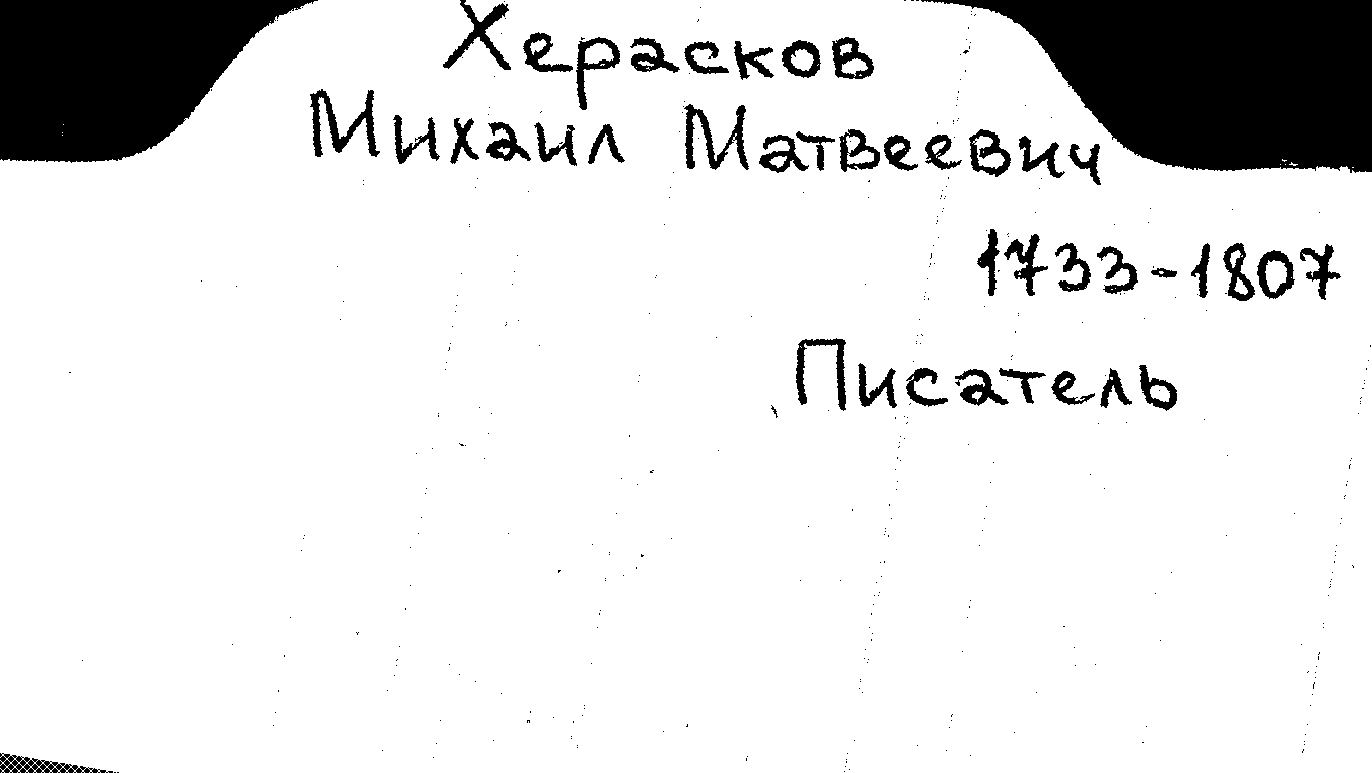 Херасков
Михаил Матвеевич
1733-1807
Писатель